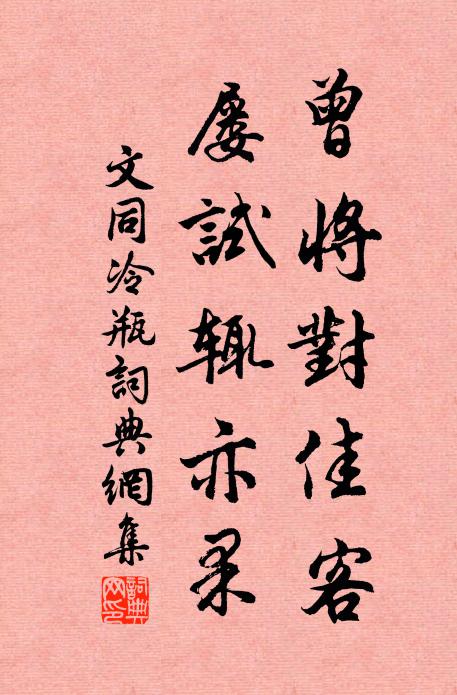 曾將對佳客
屢試輒亦果
文同冷瓶詞典網集
詞典
网印